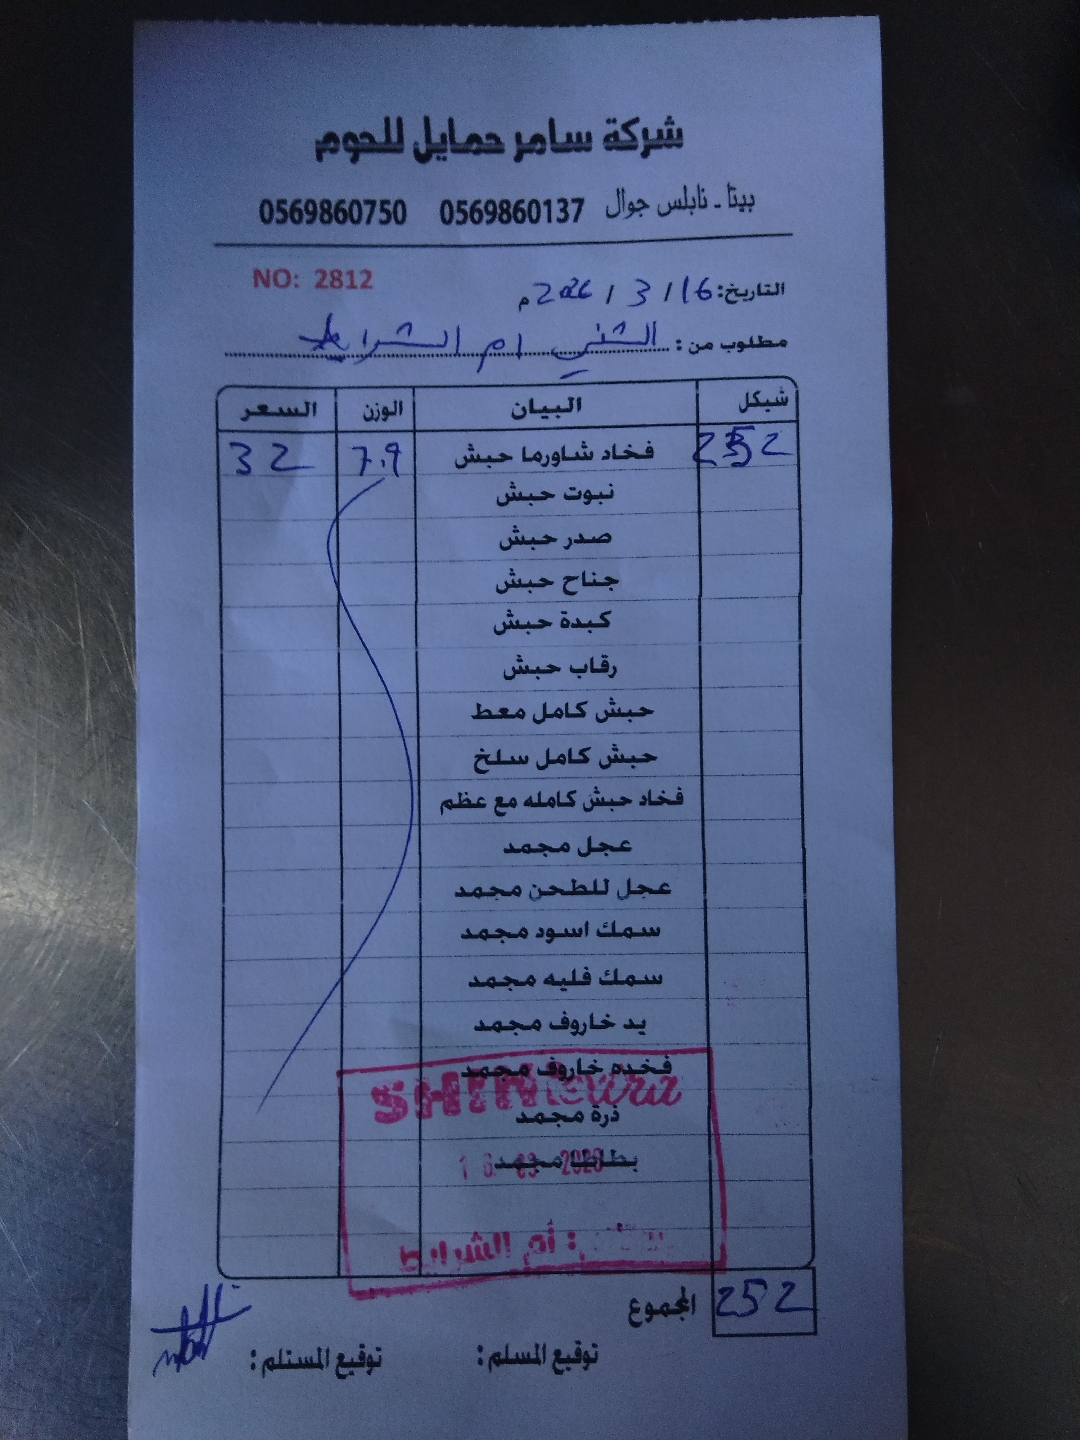 شركة سامر حمايل للحوم
بيتا - نابلس جوال 0569860137 0569860750
NO: 2812
التاريخ: 16 / 3 / 2026 م
مطلوب من : الشني ام الشرايط
شيكل البيان الوزن السعر
252 فخاد شاورما حبش 7.9 32
نبوت حبش
صدر حبش
جناح حبش
كبدة حبش
رقاب حبش
حبش كامل معط
حبش كامل سلخ
فخاد حبش كامله مع عظم
عجل مجمد
عجل للطحن مجمد
سمك اسود مجمد
سمك فليه مجمد
يد خاروف مجمد
فخده خاروف مجمد
ذرة مجمد
بطاطا مجمد
16 03 2026
: أم الشرايط
المجموع 252
توقيع المسلم : توقيع المستلم :